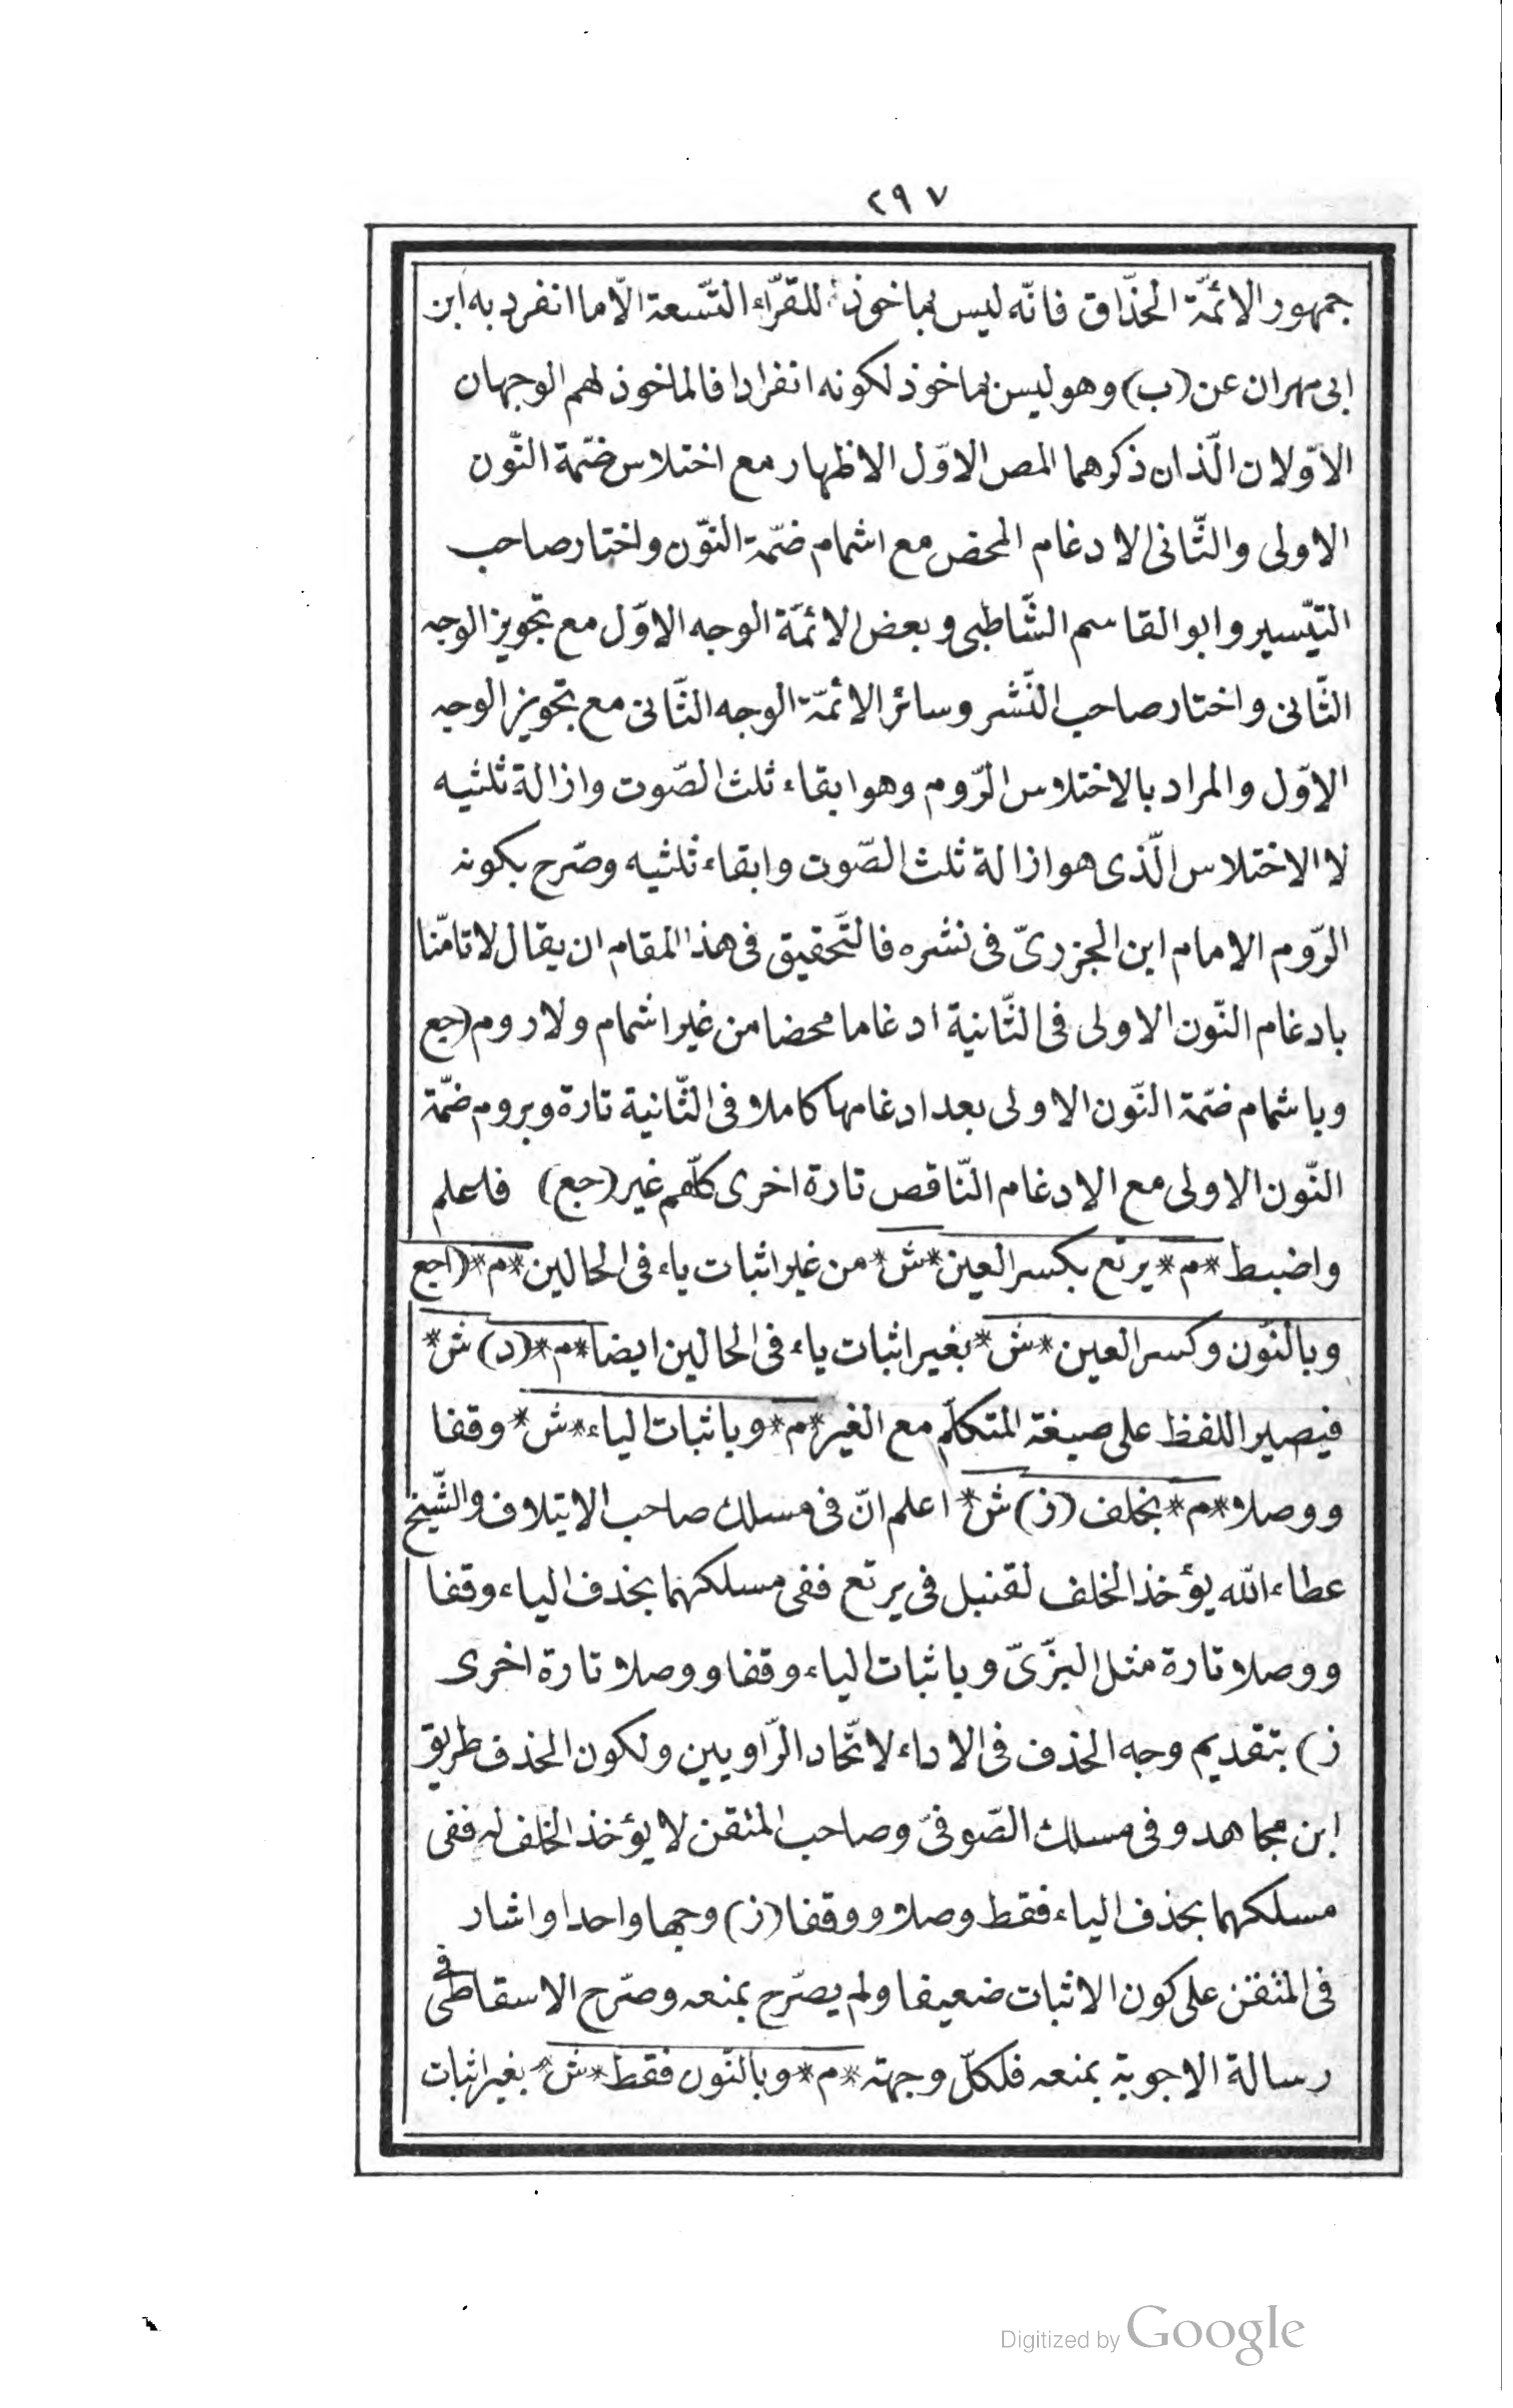 ٢٩٧
جمهور الائمّة الحذّاق فانّه ليس بماخوذ للقرّاء التّسعة الّا ما انفرد به ابن
ابى مهران عن (ب) وهو ليس بماخوذ لكونه انفرادا فالماخوذ لهم الوجهان
الاوّلان الّذان ذكرهما المص الاوّل الاظهار مع اختلاس ضمّة النّون
الاولى والثّانى الادغام المحض مع اشمام ضمّة النّون واختار صاحب
التيّسير وابو القاسم الشّاطبى وبعض الائمّة الوجه الاوّل مع تجويز الوجه
الثّانى واختار صاحب النّشر وسائر الائمّة الوجه الثّانى مع تجويز الوجه
الاوّل والمراد بالاختلاس الرّوم وهو ابقاء ثلث الصّوت وازالة ثلثيه
لا الاختلاس الّذى هو ازالة ثلث الصّوت وابقاء ثلثيه وصّرح بكونه
الرّوم الامام ابن الجزرىّ فى نشره فالتّحقيق فى هذا المقام ان يقال لا تامّنا
بادغام النّون الاولى فى الثّانية ادغاما محضا من غير اشمام ولا روم (جع
وباشمام ضمّة النّون الاولى بعد ادغامها كاملا فى الثّانية تارة وبروم ضمّة
النّون الاولى مع الادغام النّاقص تارة اخرى كلّهم غير (جع) فاعلم
واضبط *م* يرتع بكسر العين *ش* من غير اثبات ياء فى الحالين *م* (اجع
وبالنّون وكسر العين *ش* بغير اثبات ياء فى الحالين ايضا *م* (د) ش*
فيصير اللفظ على صيغة المتكلّم مع الغير *م* وباثبات الياء *ش* وقفا
ووصلا *م* بخلف (ز) ش* اعلم انّ فى مسلك صاحب الايتلاف والشّيخ
عطاء الله يؤخذ الخلف لقنبل فى يرتع ففى مسلكهما بخذف الياء وقفا
ووصلا تارة مثل البزّىّ وباثبات الياء وقفا ووصلا تارة اخرى
ز) بتقديم وجه الحذف فى الاداء لاتّحاد الرّاويين ولكون الحذف طريق
ابن مجاهد وفى مسلك الصّوفىّ وصاحب المتقن لا يؤخذ الخلف له ففى
مسلكهما بحذف الياء فقط وصلا ووقفا (ز) وجها واحدا واشار
فى المتقن على كون الاثبات ضعيفا ولم يصّرح بمنعه وصّرح الاسقاطى فى
رسالة الاجوبة بمنعه فلكلّ وجهة *م* وبالنّون فقط *ش* بغير اثبات
Digitized by Google